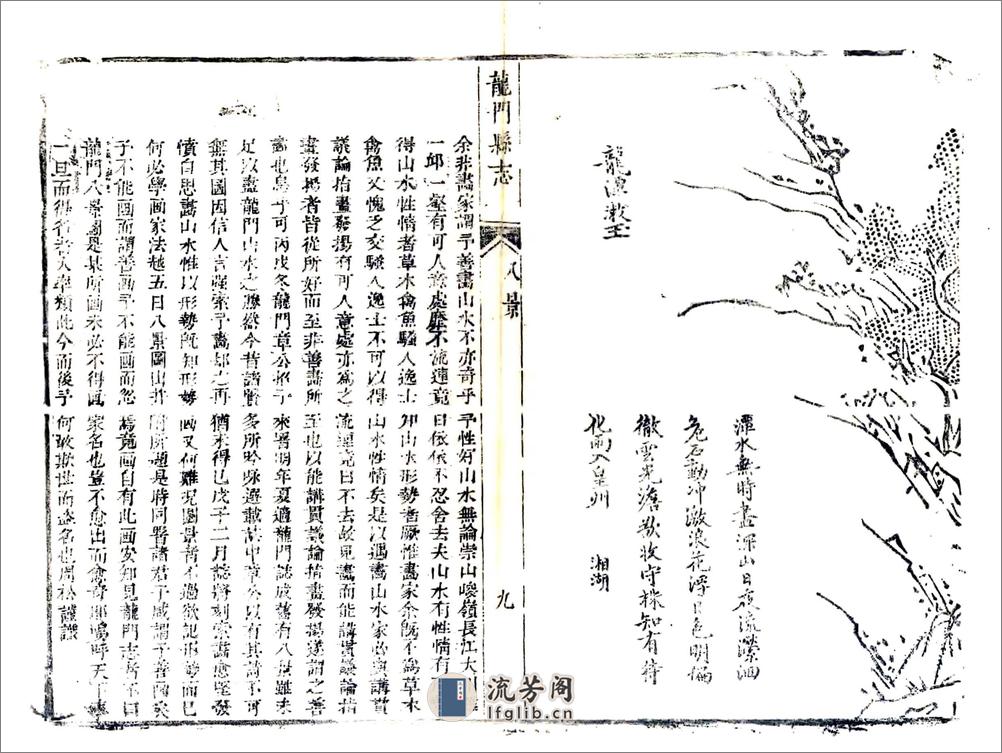 龍潭漱玉
潭水無時盡深山日夜流瀠洄
危石動冲激浪花浮日色明偏
徹雲光澹欲收守株知有待
化雨入皇州 湘湖
龍門縣志 八景 九
余非畫家謂予善畫山水不亦奇乎予性好山水無論崇山峻嶺長江大川
一邱一壑有可人意處靡不流連竟日依依不忍舍去夫山水有性情有
得山水性情者草木禽魚騷人逸士知山水形勢者厥惟畫家余既不爲草木
禽魚又愧之交騷人逸士不可以得山水性情矣是以遇畫山水家必與講貫
議論指畫發揚有可人意處亦爲之流連竟日不去故見畫而能講貫議論指
畫發揚者皆從所好而至非善畫所至也以能講貫議論指畫發揚遂謂之善
畫也烏乎可丙戌冬龍門章公招予來署明年夏適龍門誌成舊有八景雖未
足以盡龍門山水之勝然今昔諸賢多所吟咏選載誌中章公以有其詩不可
無其圖因信人言強索予畫却之再猶未得已戊子二月誌將刻索畫愈堅發
憤自思畫山水性以形勢既知形勢画又何難况圖景者不過欲記形勢而已
何必學画家法越五日八景圖出并附所題是時同署諸君子咸謂予善画矣
予不能画而謂善画予不能画而忽焉竟画自有此画安知見龍門志者不曰
龍門八景圖是某所画未必不得画家名也豈不愈出而愈奇耶嗚呼天下事
一旦而得名者大率類此今而後予何敢欺世而盜名也周松謹識
流芳阁
lfglib.cn